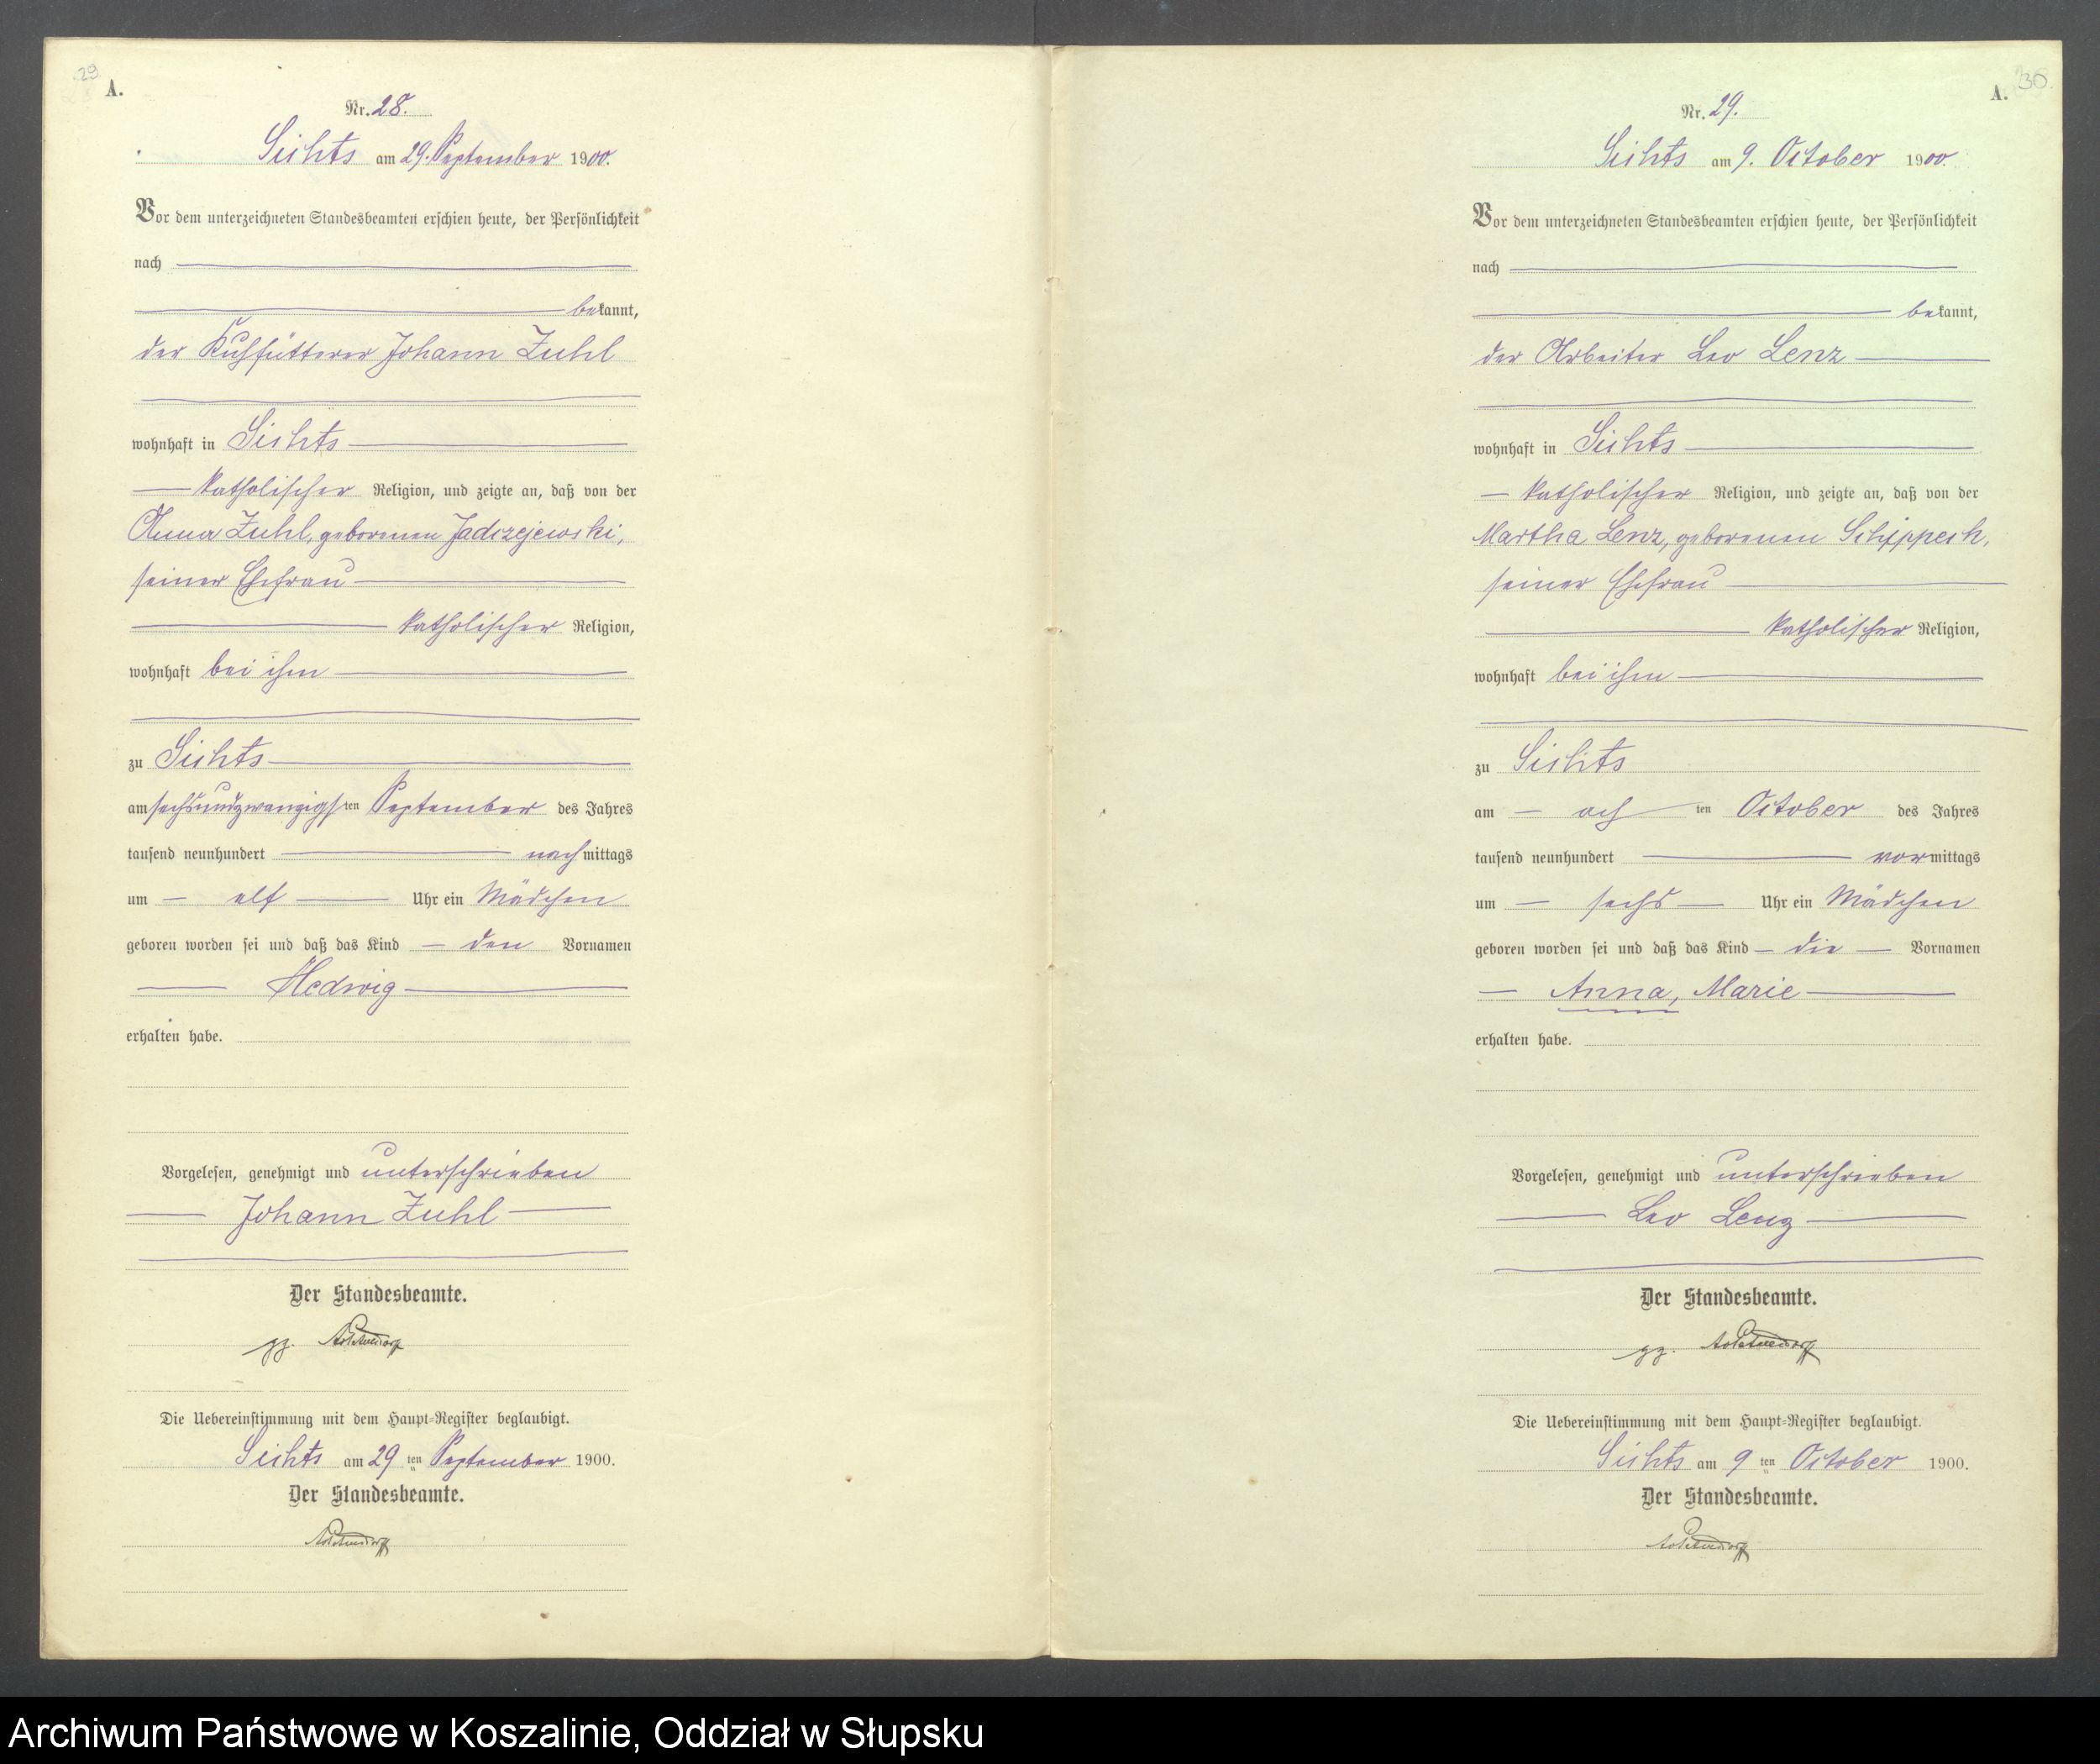 29
A.
Nr. 28.
Sichts am 29. September 1900.
Vor dem unterzeichneten Standesbeamten erschien heute, der Persönlichkeit
nach
bekannt,
der Kuhfütterer Johann Zuhl
wohnhaft in Sichts
katholischer Religion, und zeigte an, daß von der
Anna Zuhl, geborenen Jadczejewski,
seiner Ehefrau
katholischer Religion,
wohnhaft bei ihm
zu Sichts
am sechsundzwanzigsten September des Jahres
tausend neunhundert nachmittags
um elf Uhr ein Mädchen
geboren worden sei und daß das Kind den Vornamen
Hedwig
erhalten habe.
Vorgelesen, genehmigt und unterschrieben
Johann Zuhl
Der Standesbeamte.
gz.
Die Uebereinstimmung mit dem Haupt-Register beglaubigt.
Sichts am 29ten September 1900.
Der Standesbeamte.
30
A.
Nr. 29.
Sichts am 9. October 1900.
Vor dem unterzeichneten Standesbeamten erschien heute, der Persönlichkeit
nach
bekannt,
der Arbeiter Leo Lenz
wohnhaft in Sichts
katholischer Religion, und zeigte an, daß von der
Martha Lenz, geborenen Schippeck,
seiner Ehefrau
katholischer Religion,
wohnhaft bei ihm
zu Sichts
am achten October des Jahres
tausend neunhundert vormittags
um sechs Uhr ein Mädchen
geboren worden sei und daß das Kind die Vornamen
Anna, Marie
erhalten habe.
Vorgelesen, genehmigt und unterschrieben
Leo Lenz
Der Standesbeamte.
gz.
Die Uebereinstimmung mit dem Haupt-Register beglaubigt.
Sichts am 9ten October 1900.
Der Standesbeamte.
Archiwum Państwowe w Koszalinie, Oddział w Słupsku